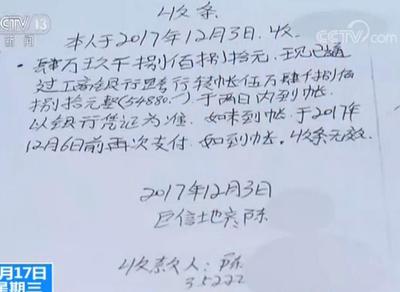 CCTV 13
新闻
CCTV.com
收条
本人于2017年12月3日.收
肆万玖千捌佰捌拾元.现已通
过工商银行跨行转帐伍万肆千捌佰
捌拾元整(54880.-)于两日内到帐
以银行凭证为准.如未到帐.于2017年
12月6日前再次支付.如到帐.收条无效.
2017年12月3日
巨信地产陈
收款人:陈
35222
月17日
星期三